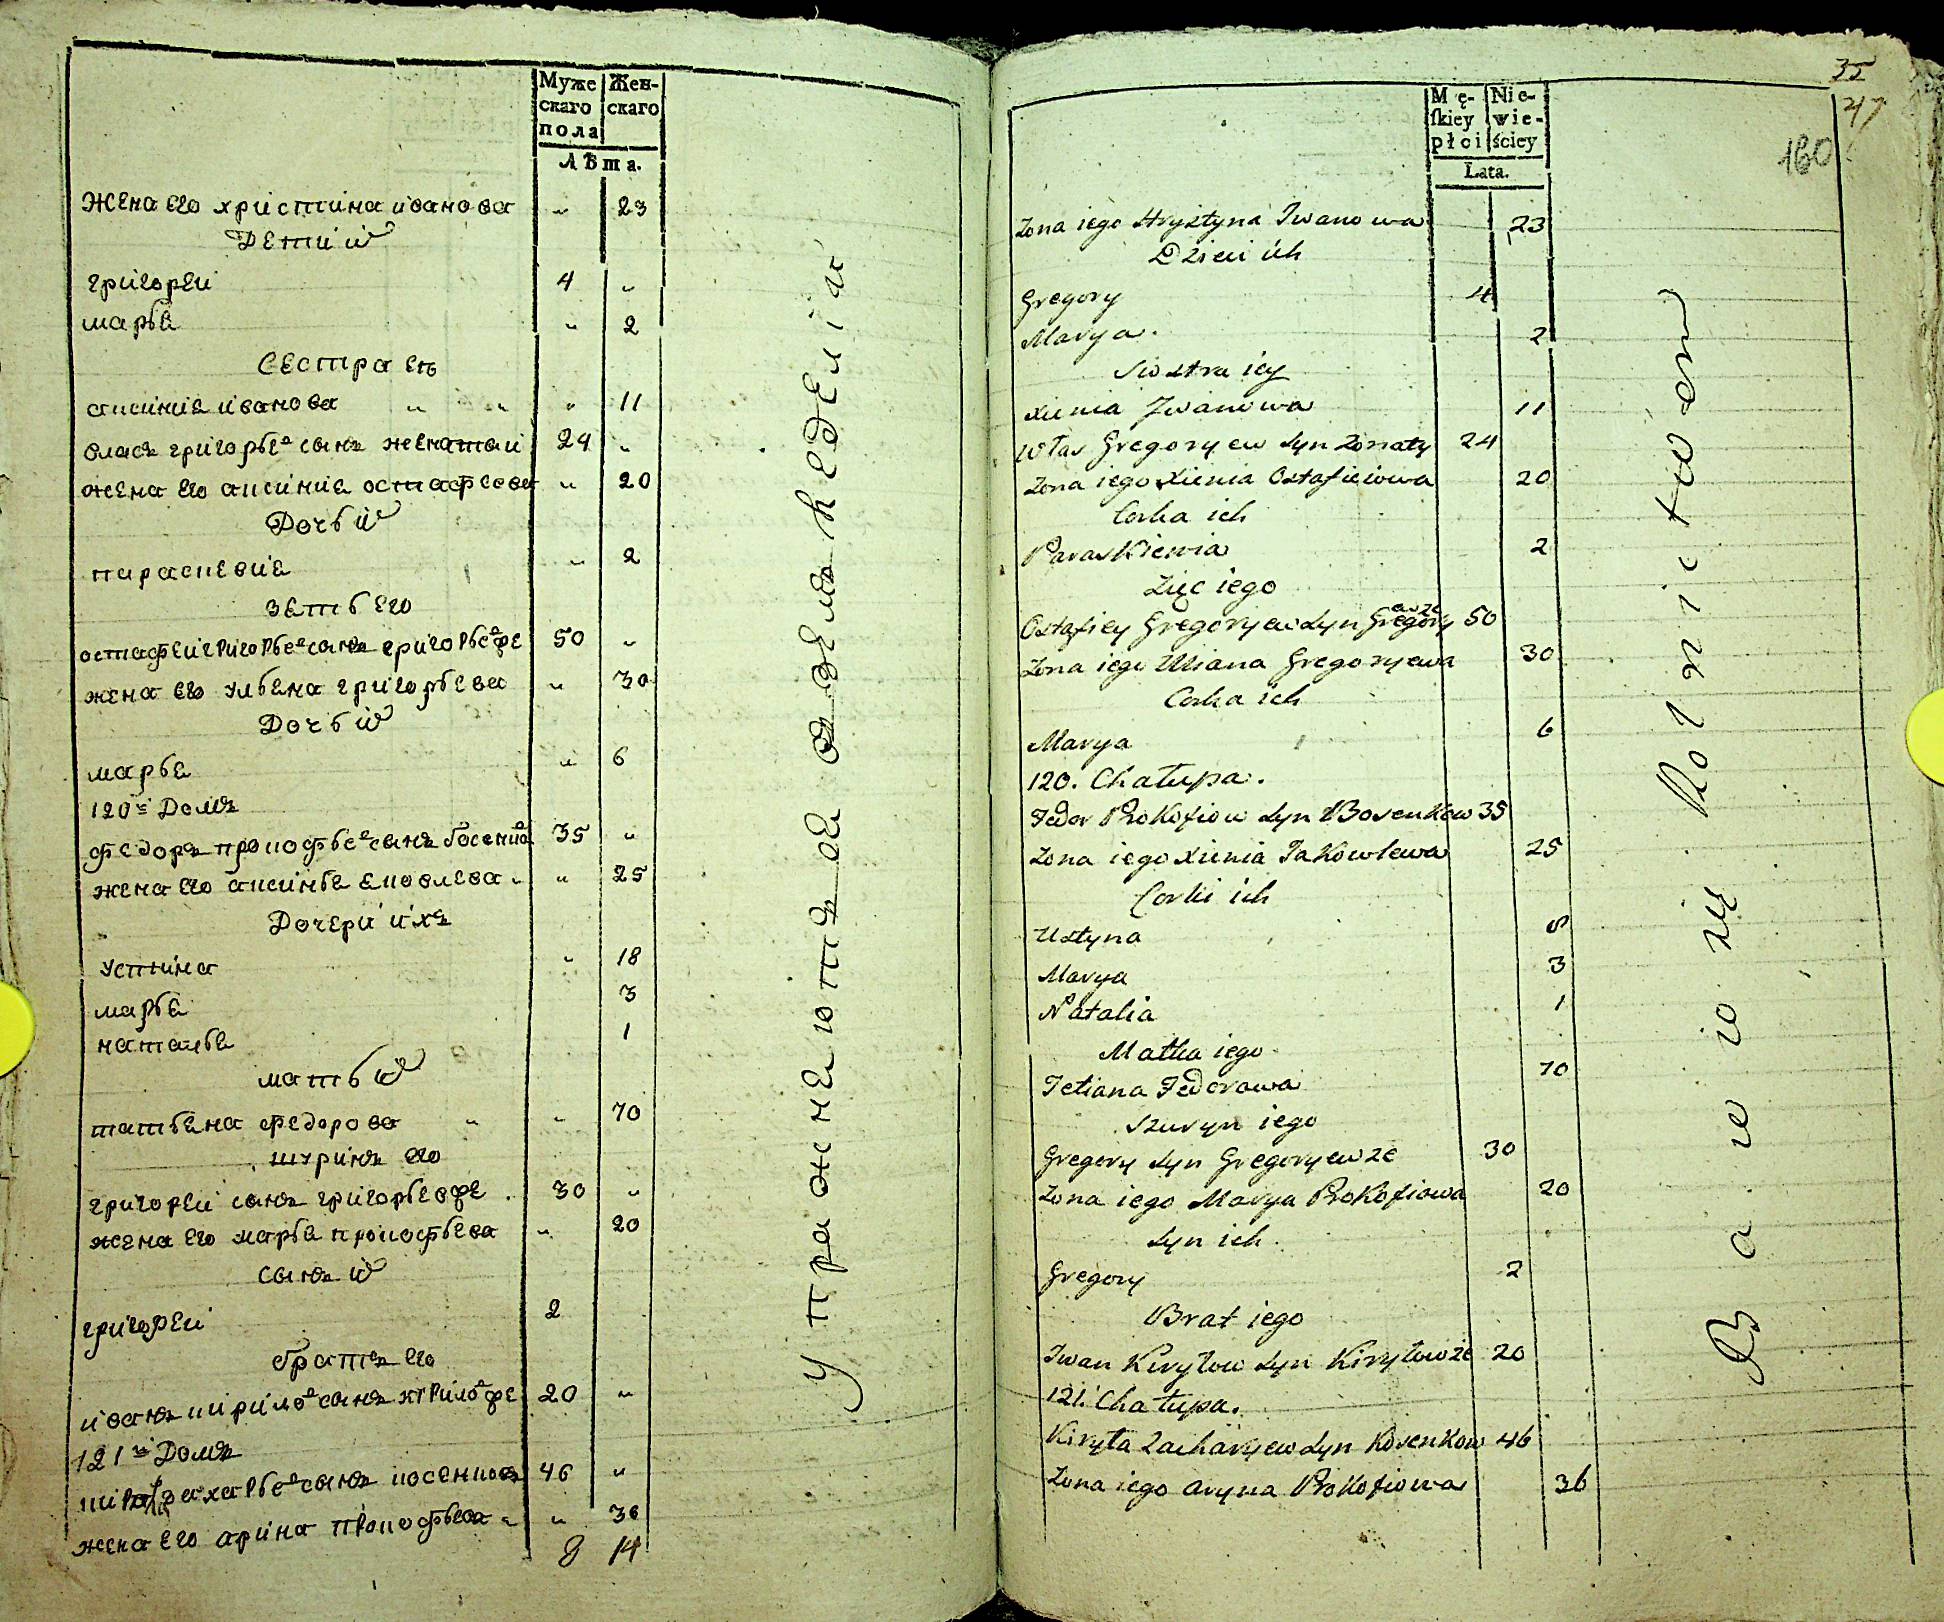 Муже
скаго
пола
Жен-
скаго
Лѣта.
жена его христина иванова " 23
Дети иⷯ
григореи 4 "
марѣа " 2
Сестра еѣ
аксиниа иванова " " " 11
власъ григорьеⷡ сынъ женатои 24 "
жена его аксиниа остафеова " 20
Дочь иⷯ
парасковиа " 2
зеть его
остафеи григорьеⷡ сынъ григорьеⷡже 50 "
жена его ульена григорьева " 30
Дочь иⷯ
марьа " 6
120ⁱ Домъ
федоръ прокофьеⷡ сынъ босенкоⷡ 35 "
жена его аксинья яковлева " 25
Дочери ихъ
устина " 18
марьа 3
наталья 1
мать иⷯ
татьяна федорова " " 70
шуринъ его
григореи сынъ григорьевже 30 "
жена его марья прокофьева " 20
сынъ иⷯ
григореи 2
братъ его
иванъ кирилоⷡ сынъ кирилоⷡже 20 "
121ⁱ Домъ
захарьеⷡ сынъ косенковъ 46 "
жена его арина прокофьева " " 36
8 14
Упражняютца въ земленеделіи
35
47
160
Mę-
skiey
płci
Nie-
wie-
ściey
Lata.
Zona iego Hrystyna Iwanowa 23
Dzieci ich
Gregory 4
Marya. 2
Siostra iey
Xienia Iwanowa 11
Włas Gregoryew Syn Zonaty 24
Zona iego Xienia Ostafieiowa 20
Corka ich
Paraskiewia 2
Zięc iego
Ostafiey Gregoryew Syn Gregory ewze 50
Zona iego Uliana Gregoryewa 30
Corka ich
Marya 6
120. Chałupa.
Fedor Prokofiow Syn Bosenkow 35
Zona iego Xienia Jakowlewa 25
Corki ich
Ustyna 8
Marya 3
Natalia 1
Matka iego
Tetiana Fedorowa 70
Szuryn iego
Gregory Syn Gregoryewze 30
Zona iego Marya Prokofiowa 20
Syn ich.
Gregory 2
Brat iego
Iwan Kiryłow Syn Kiryłowze 20
121. Chałupa.
Kiryła Zacharyew Syn Kosenkow 46
Zona iego Aryna Prokofiowa 36
Bawią się Rolnictwem